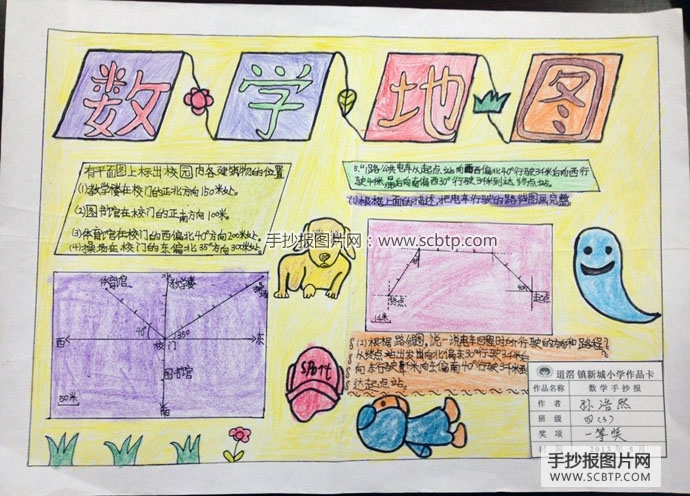 数学地图
有平面图上标出校园内各建筑物的位置
(1)教学楼在校门的正北方向150米处。
(2)图书馆在校门的正南方向100米。
(3)体育馆在校门的西偏北40°方向200米处。
(4)操场在校门的东偏北35°方向300米处。
5.1路公共电车从起点站向西偏北40°行驶3千米后向西行
驶4千米,最后向南偏西30°行驶3千米到达终点站。
(1)根据上面的描述,把电车行驶的路线图画完整
手抄报图片网:www.scbtp.com
体育馆
教学楼
西
东
40°
35°
校门
图书馆
南
50米
终点
起点
1千米
sport
(2)根据路线图,说一说电车回程时所行驶的方向和路程
从终点站出发向北偏东30°行驶3千米
向东行驶4千米向东偏南40°行驶3千米到
达起点站。
道滘镇新城小学作品卡
作品名称 数学手抄报
作者 孙浩然
班级 四(3)
奖项 一等奖
手抄报图片网
WWW.SCBTP.COM